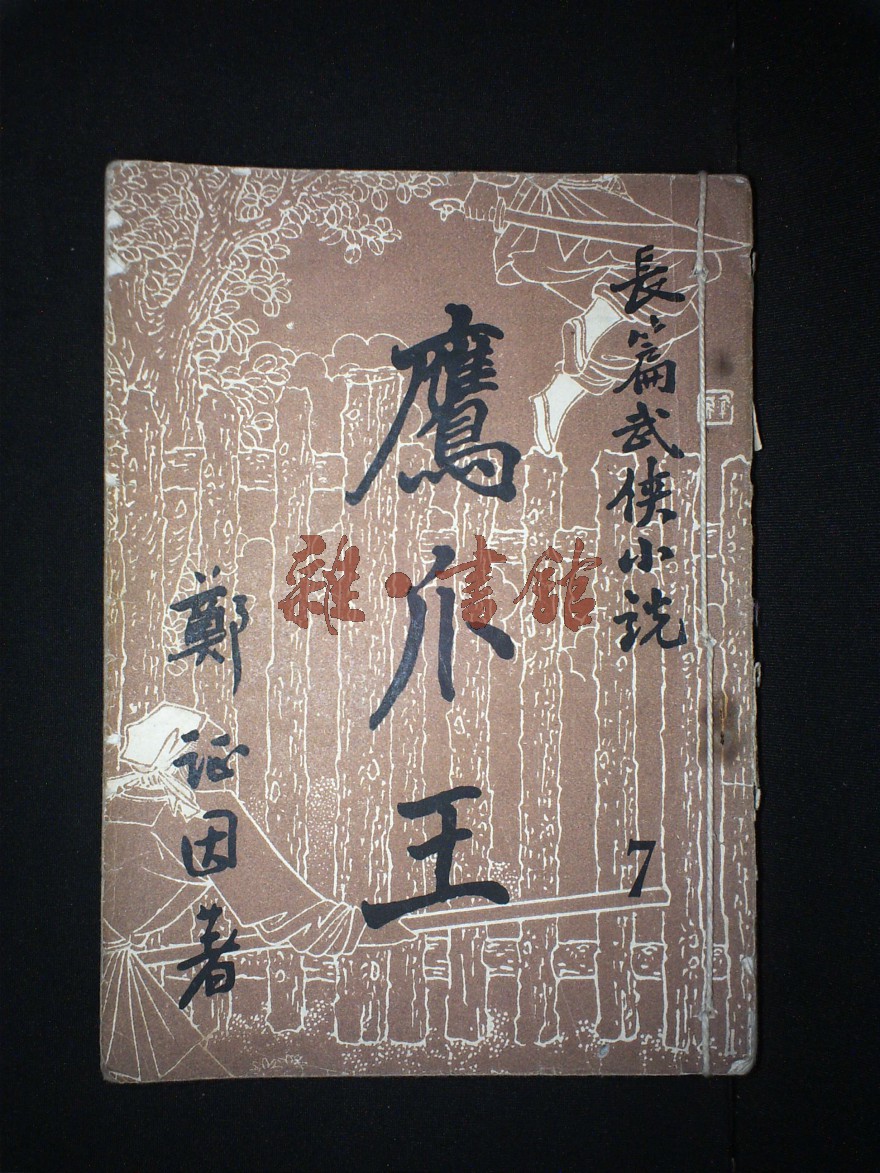 長篇武俠小説
7
鷹爪王
鄭証因著
雜·書館